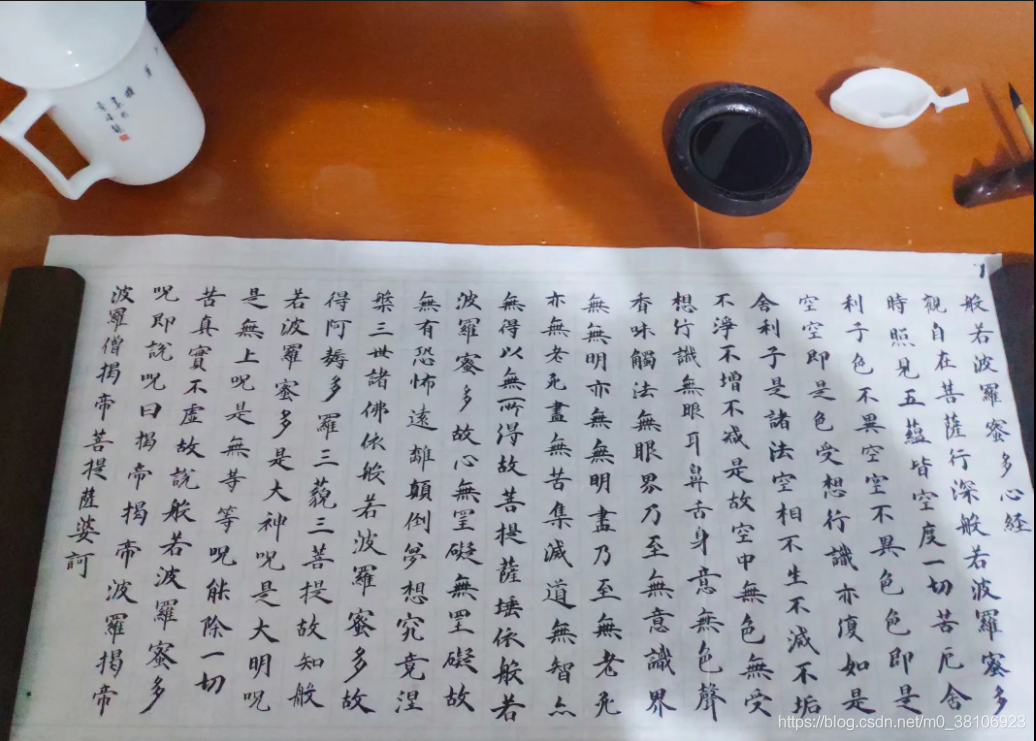 般若波羅蜜多心経
觀自在菩薩行深般若波羅蜜多
時照見五蘊皆空度一切苦厄舍
利子色不異空空不異色色即是
空空即是色受想行識亦復如是
舍利子是諸法空相不生不滅不垢
不淨不增不減是故空中無色無受
想行識無眼耳鼻舌身意無色聲
香味觸法無眼界乃至無意識界
無無明亦無無明盡乃至無老死
亦無老死盡無苦集滅道無智亦
無得以無所得故菩提薩埵依般若
波羅蜜多故心無罣礙無罣礙故
無有恐怖遠離顛倒夢想究竟涅
槃三世諸佛依般若波羅蜜多故
得阿耨多羅三藐三菩提故知般
若波羅蜜多是大神呪是大明呪
是無上呪是無等等呪能除一切
苦真實不虛故說般若波羅蜜多
呪即說呪曰揭帝揭帝波羅揭帝
波羅僧揭帝菩提薩婆訶
https://blog.csdn.net/m0_38106923